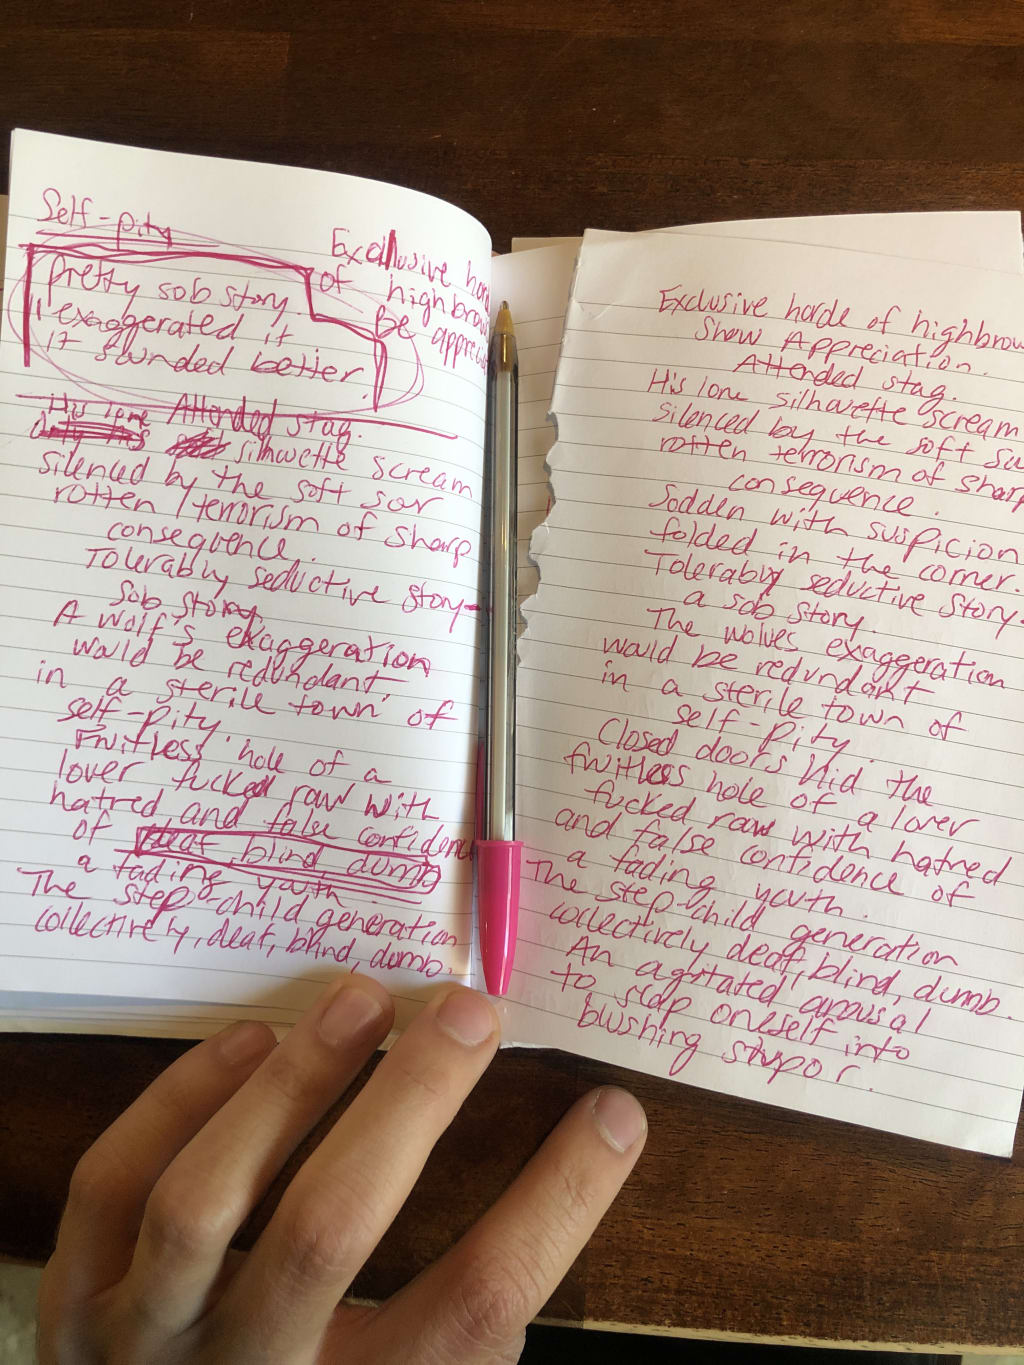 Self-pity
Pretty sob story.
I exaggerated it
it sounded better.
Exclusive
of highbrow
be
His lone Attended stag.
silhouette scream
silenced by the soft
rotten / terrorism of sharp
consequence.
Tolerably seductive story-
sob story.
A wolf's exaggeration
would be redundant.
in a sterile town of
self-pity.
Fruitless hole of a
lover fucked raw with
hatred and false
of deaf, blind, dumb
a fading youth.
The step-child generation
collectively, deaf, blind, dumb.
Exclusive horde of highbrow
Show Appreciation.
Attended stag.
His lone silhouette scream
silenced by the soft
rotten terrorism of
consequence.
Sodden with suspicion
folded in the corner.
Tolerably seductive story-
a sob story.
The wolves exaggeration
would be redundant
in a sterile town of
self-pity.
Closed doors hid the
fruitless hole of a lover
fucked raw with hatred
and false confidence of
a fading youth.
The step-child generation
collectively deaf, blind, dumb.
An agitated arousal
to slap oneself into
blushing stupor.